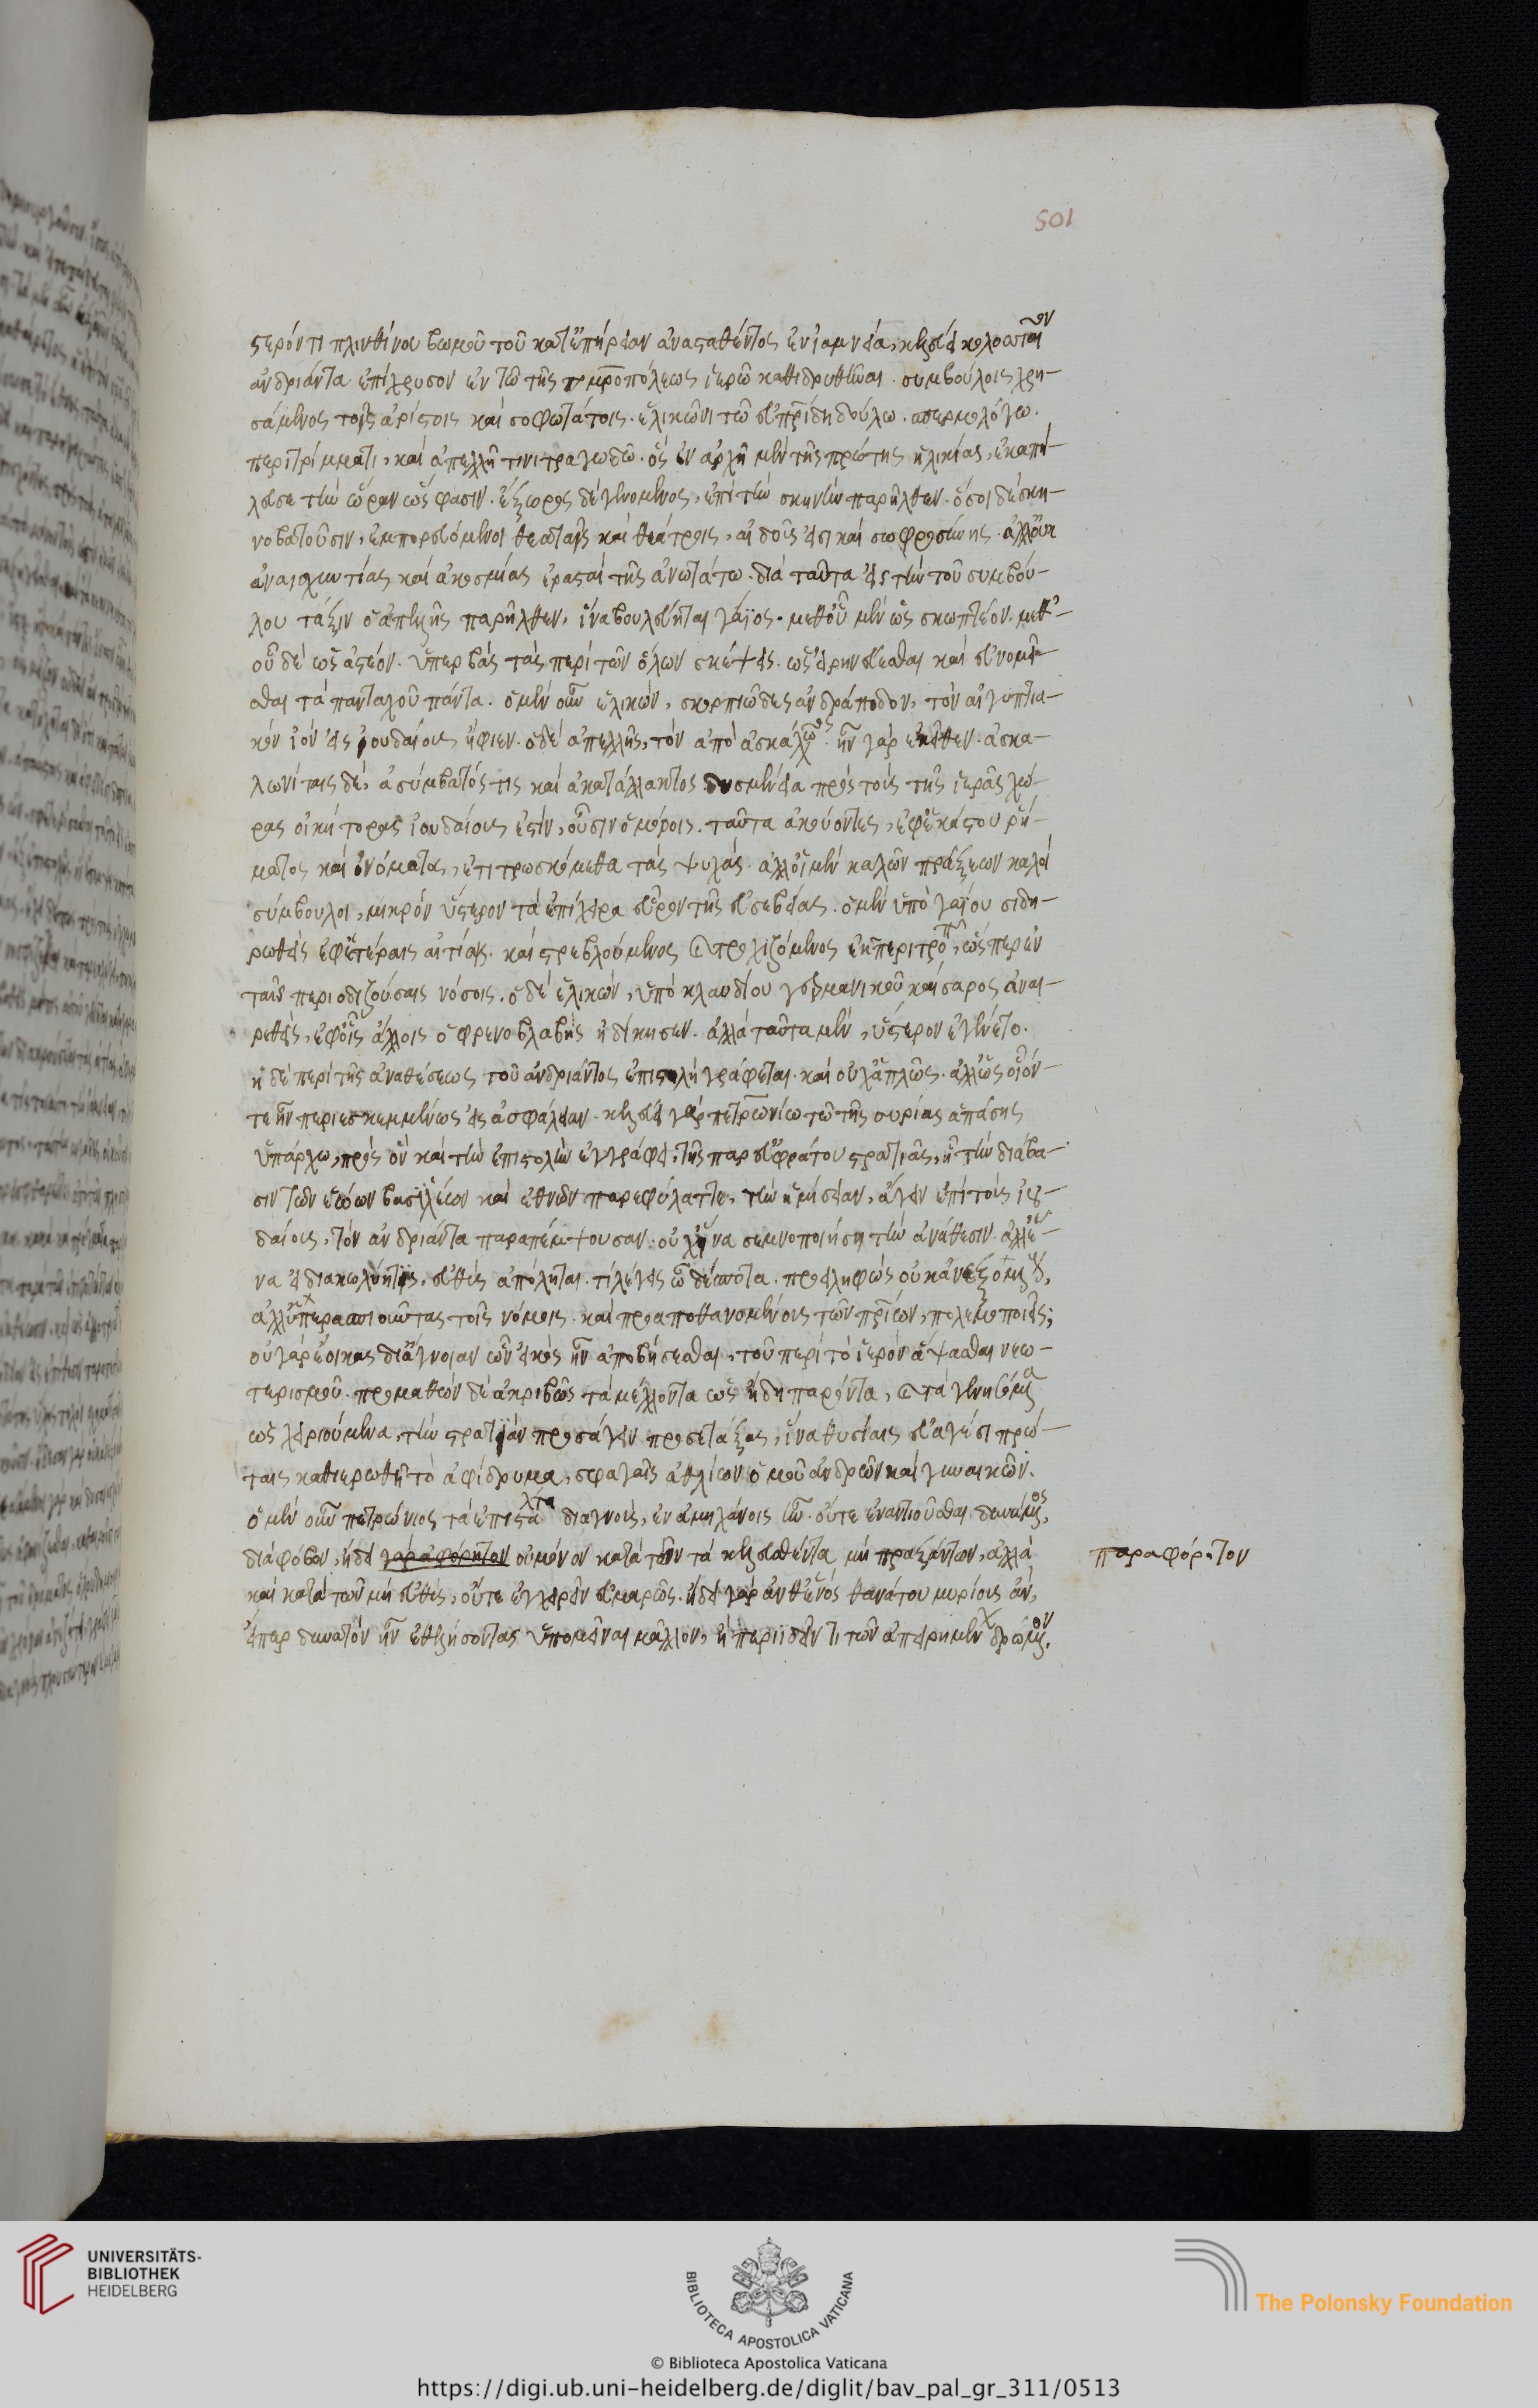 στερόν τι πλινθίνου βωμοῦ τοῦ κατ' ἐπήρειαν ἀνασταθέντος ἐν ἰαμνεία, κελεύει κολοσσιαῖον
ἀνδριάντα ἐπίχρυσον ἐν τῶ τῆς μητροπόλεως ἱερῶ καθιδρυθῆναι. συμβούλοις χρη-
σάμενος τοῖς ἀρίστοις καὶ σοφωτάτοις. ἑλικῶνι τῶ εὐπατρίδη δούλω. σπερμολόγω.
περιτρίμματι, καὶ ἀπελλῆ τινι τραγωδῶ. ὃς ἐν ἀρχῆ μὲν τῆς πρώτης ἡλικίας, ἐκαπή-
λευσε τὴν ὥραν ὥς φασιν. ἔξωρος δὲ γενόμενος, ἐπὶ τὴν σκηνὴν παρῆλθεν. ὅσοι δὲ σκη-
νοβατοῦσιν, ἐμπορευόμενοι θεαταῖς καὶ θεάτροις, αἰδοῦς εἰσι καὶ σωφροσύνης. ἀλλ' οὐκ
ἀναισχυντίας καὶ ἀκοσμίας ἐρασταὶ τῆς ἀνωτάτω. διὰ ταῦτα εἰς τὴν τοῦ συμβού-
λου τάξιν ὁ ἀπελῆς παρῆλθεν, ἵνα βουλεύηται γάϊος. μεθ' οὗ μὲν ὡς σκωπτέον. μεθ'
οὗ δὲ ὡς ἀστέον. ὑπερβὰς τὰς περὶ τῶν ὅλων σκέψεις. ὡς εἰρηνεύεσθαι καὶ εὐνομεῖ-
σθαι τὰ πανταχοῦ πάντα. ὁ μὲν οὖν ἑλικών, σκορπιῶδες ἀνδράποδον, τὸν αἰγυπτια-
κὸν ἰὸν εἰς ἰουδαίους ἤφιεν. ὁ δὲ ἀπελλῆς, τὸν ἀπὸ ἀσκάλωνος. ἦν γὰρ ἐκεῖθεν. ἀσκα-
λωνίταις δὲ, ἀσύμβατός τις καὶ ἀκατάλλακτος δυσμένεια πρὸς τοὺς τῆς ἱερᾶς χώ-
ρας οἰκήτορας ἰουδαίους ἐστίν, οὖσιν ὁμόροις. ταῦτα ἀκούοντες, ἐφ' ἑκάστου ῥή-
ματος καὶ ὀνόματος, ἐτιτρωσκόμεθα τὰς ψυχάς. ἀλλ' οἱ μὲν καλῶν πράξεων καλοὶ
σύμβουλοι, μικρὸν ὕστερον τὰ ἐπίχειρα εὗρον τῆς εὐσεβείας. ὁ μὲν ὑπὸ γαΐου σιδη-
ρωθεὶς ἐφ' ἑτέραις αἰτίαις. καὶ στρεβλούμενος καὶ τροχιζόμενος ἐκ περιτροπῆς, ὥσπερ ἐν
ταῖς περιοδιζούσαις νόσοις. ὁ δὲ ἑλικών, ὑπὸ κλαυδίου γερμανικοῦ καίσαρος ἀναι-
ρεθείς, ἐφ' οἷς ἄλλοις ὁ φρενοβλαβὴς ἠδίκησεν. ἀλλὰ ταῦτα μὲν, ὕστερον ἐγένετο.
ἡ δὲ περὶ τῆς ἀναθέσεως τοῦ ἀνδριάντος ἐπιστολὴ γράφεται. καὶ οὐχ ἁπλῶς. ἀλλ' ὡς οἷόν-
τε ἦν περιεσκεμμένως εἰς ἀσφάλειαν. κελεύει γὰρ πετρωνίω τῶ τῆς συρίας ἁπάσης
ὑπάρχω, πρὸς ὃν καὶ τὴν ἐπιστολὴν ἐγγράφει, τῆς παρ' εὐφράτου στρατιᾶς, ἣ τὴν διάβα-
σιν τῶν ἑώων βασιλέων καὶ ἐθνῶν παρεφύλαττε, τὴν ἡμίσειαν, ἄγειν ἐπὶ τοὺς ἰου-
δαίους, τὸν ἀνδριάντα παραπέμψουσαν. οὐχ ἵνα σεμνοποιήση τὴν ἀνάθεσιν. ἀλλ' ἵ-
να εἰ διακωλύη τις, εὐθὺς ἀπόληται. τί λέγεις ὦ δέσποτα. προειληφὼς οὐκ ἀνεξομένους,
ἀλλ' ὑπερασπιοῦντας τοῖς νόμοις. καὶ προαποθανουμένους τῶν πατρίων, πολεμοποιεῖς;
οὐ γὰρ ἔοικας δι' ἄγνοιαν ὧν εἰκὸς ἦν ἀποβήσεσθαι, τοῦ περὶ τὸ ἱερὸν ἅψασθαι νεω-
τερισμοῦ. προμαθὼν δὲ ἀκριβῶς τὰ μέλλοντα ὡς ἤδη παρόντα, καὶ τὰ γενησόμενα
ὡς χειριούμενα, τὴν στρατιὰν προσάγειν προσετάξας, ἵνα θυσίαις εὐαγέσι πρώ-
ταις καθιερωθῆ τὸ ἀφίδρυμα, σφαγαῖς ἀθλίων ὁμοῦ ἀνδρῶν καὶ γυναικῶν.
ὁ μὲν οὖν πετρώνιος τὰ ἐπισταλέντα διαγνούς, ἐν ἀμηχάνοις ἦν. οὔτε ἐναντιοῦσθαι δυνάμενος,
διὰ φόβον, ἤδει γὰρ ἀφόρητον οὐ μόνον κατὰ τῶν τὰ κελευσθέντα μὴ πραξάντων, ἀλλὰ
καὶ κατὰ τῶν μὴ εὐθύς, οὔτε ἐγχειρεῖν εὐμαρῶς. ἤδει γὰρ ἀνθ' ἑνὸς θανάτου μυρίους ἄν,
εἴπερ δυνατὸν ἦν ἐθελήσοντας ὑπομεῖναι μᾶλλον, ἢ περιϊδεῖν τι τῶν ἀπειρημένων δρώμενον.
παραφόρητον
501
UNIVERSITÄTS-
BIBLIOTHEK
HEIDELBERG
BIBLIOTECA APOSTOLICA VATICANA
The Polonsky Foundation
© Biblioteca Apostolica Vaticana
https://digi.ub.uni-heidelberg.de/diglit/bav_pal_gr_311/0513